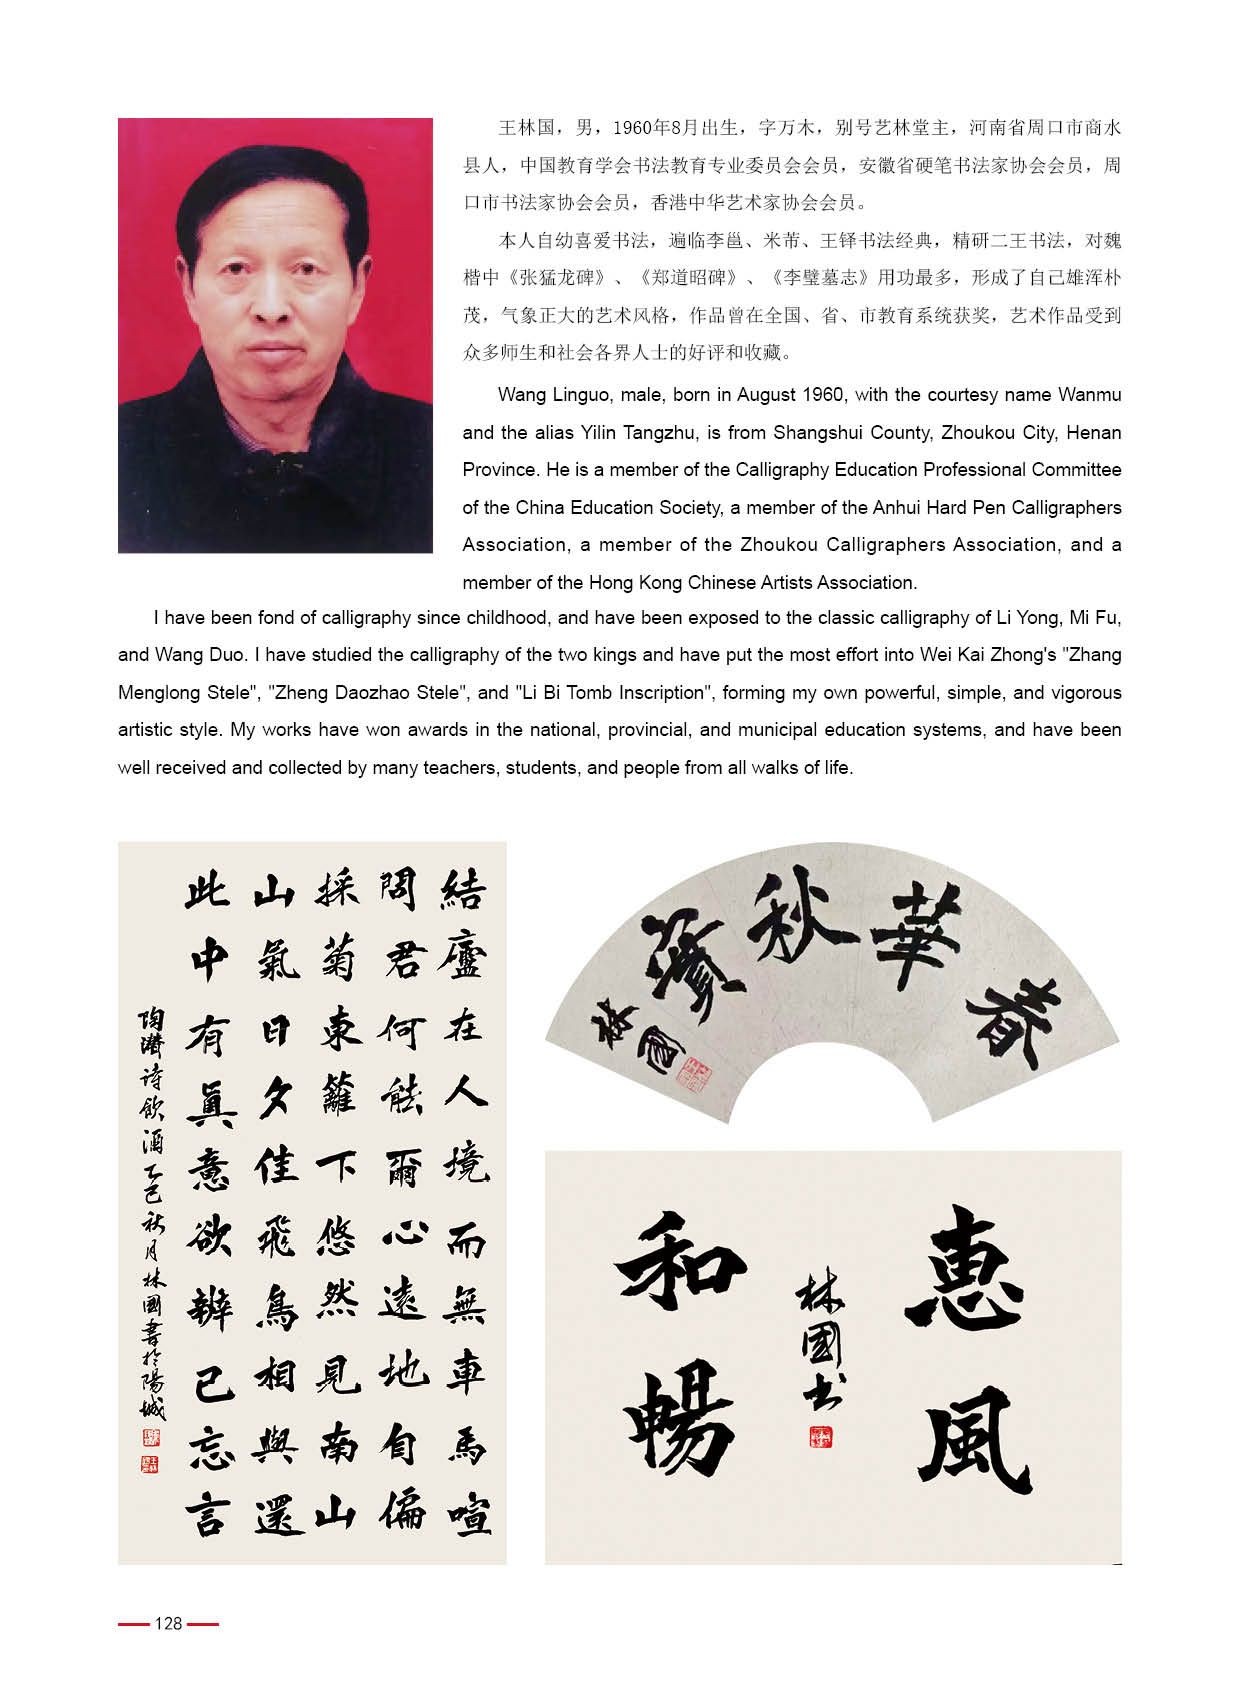 王林国，男，1960年8月出生，字万木，别号艺林堂主，河南省周口市商水
县人，中国教育学会书法教育专业委员会会员，安徽省硬笔书法家协会会员，周
口市书法家协会会员，香港中华艺术家协会会员。
本人自幼喜爱书法，遍临李邕、米芾、王铎书法经典，精研二王书法，对魏
楷中《张猛龙碑》、《郑道昭碑》、《李璧墓志》用功最多，形成了自己雄浑朴
茂，气象正大的艺术风格，作品曾在全国、省、市教育系统获奖，艺术作品受到
众多师生和社会各界人士的好评和收藏。
Wang Linguo, male, born in August 1960, with the courtesy name Wanmu
and the alias Yilin Tangzhu, is from Shangshui County, Zhoukou City, Henan
Province. He is a member of the Calligraphy Education Professional Committee
of the China Education Society, a member of the Anhui Hard Pen Calligraphers
Association, a member of the Zhoukou Calligraphers Association, and a
member of the Hong Kong Chinese Artists Association.
I have been fond of calligraphy since childhood, and have been exposed to the classic calligraphy of Li Yong, Mi Fu,
and Wang Duo. I have studied the calligraphy of the two kings and have put the most effort into Wei Kai Zhong's "Zhang
Menglong Stele", "Zheng Daozhao Stele", and "Li Bi Tomb Inscription", forming my own powerful, simple, and vigorous
artistic style. My works have won awards in the national, provincial, and municipal education systems, and have been
well received and collected by many teachers, students, and people from all walks of life.
結廬在人境而無車馬喧
問君何能爾心遠地自偏
採菊東籬下悠然見南山
山氣日夕佳飛鳥相與還
此中有眞意欲辨已忘言
陶潛诗飲酒乙巳秋月林國書於陽城
春華秋實
林國
惠風
和暢
林國书
128